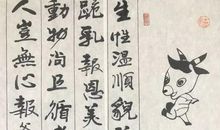 生性温順貌
跪乳報恩美
動物尚且循
人豈無心報